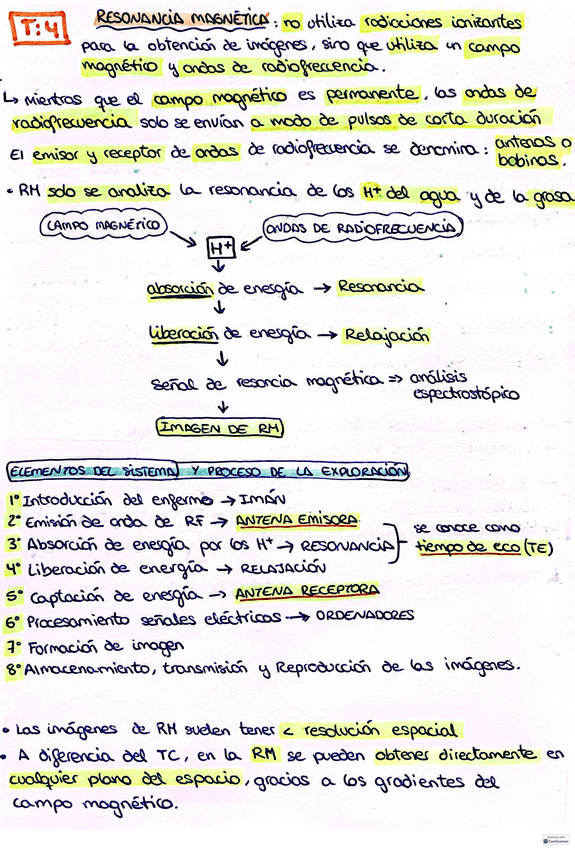 T:4
RESONANCIA MAGNÉTICA: no utiliza radiaciones ionizantes
para la obtención de imágenes, sino que utiliza un campo
magnético y ondas de radiofrecuencia.
↳ mientras que el campo magnético es permanente, las ondas de
radiofrecuencia solo se envían a modo de pulsos de corta duración
El emisor y receptor de ondas de radiofrecuencia se denomina: antenas o
bobinas.
• RM solo se analiza la resonancia de los H+ del agua y de la grasa
CAMPO MAGNÉTICO
ONDAS DE RADIOFRECUENCIA
H+
absorción de energía → Resonancia
liberación de energía → Relajación
señal de resoncia magnética => análisis
espectrostópico
IMAGEN DE RM
ELEMENTOS DEL SISTEMA Y PROCESO DE LA EXPLORACIÓN
1º Introducción del enfermo → IMÁN
2º Emisión de onda de RF → ANTENA EMISORA
3º Absorción de energía por los H+ → RESONANCIA
4º Liberación de energía → RELAJACIÓN
se conoce como
tiempo de eco (TE)
5º Captación de energía → ANTENA RECEPTORA
6º Procesamiento señales eléctricas → ORDENADORES
7º Formación de imagen
8º Almacenamiento, transmisión y Reproducción de las imágenes.
• Las imágenes de RM suelen tener < resolución espacial
• A diferencia del TC, en la RM se pueden obtener directamente en
cualquier plano del espacio, gracias a los gradientes del
campo magnético.
CamScanner